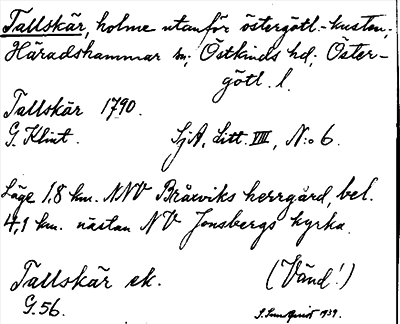 Tallskär, holme utanför östergötl.-kusten,
Häradshammar sn; Östkinds hd; Öster-
götl. l.
Tallskär 1790.
G. Klint.
SjA, Litt. VIII, N:o 6.
Läge 1,8 km. NNV Bråxviks herrgård, bel.
4,1 km. nästan NV Jonsbergs kyrka.
Tallskär ek.
(Vänd!)
G. 56.
1939.